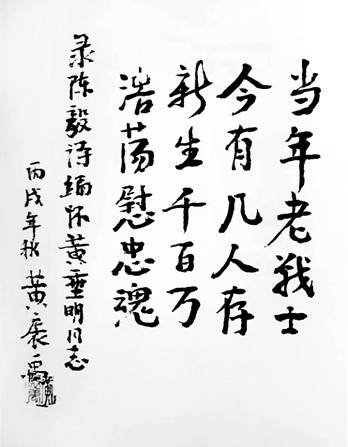 当年老战士
今有几人存
新生千百万
浩荡慰忠魂
录陈毅诗缅怀黄垂明同志
丙戌年秋 黄辰禹